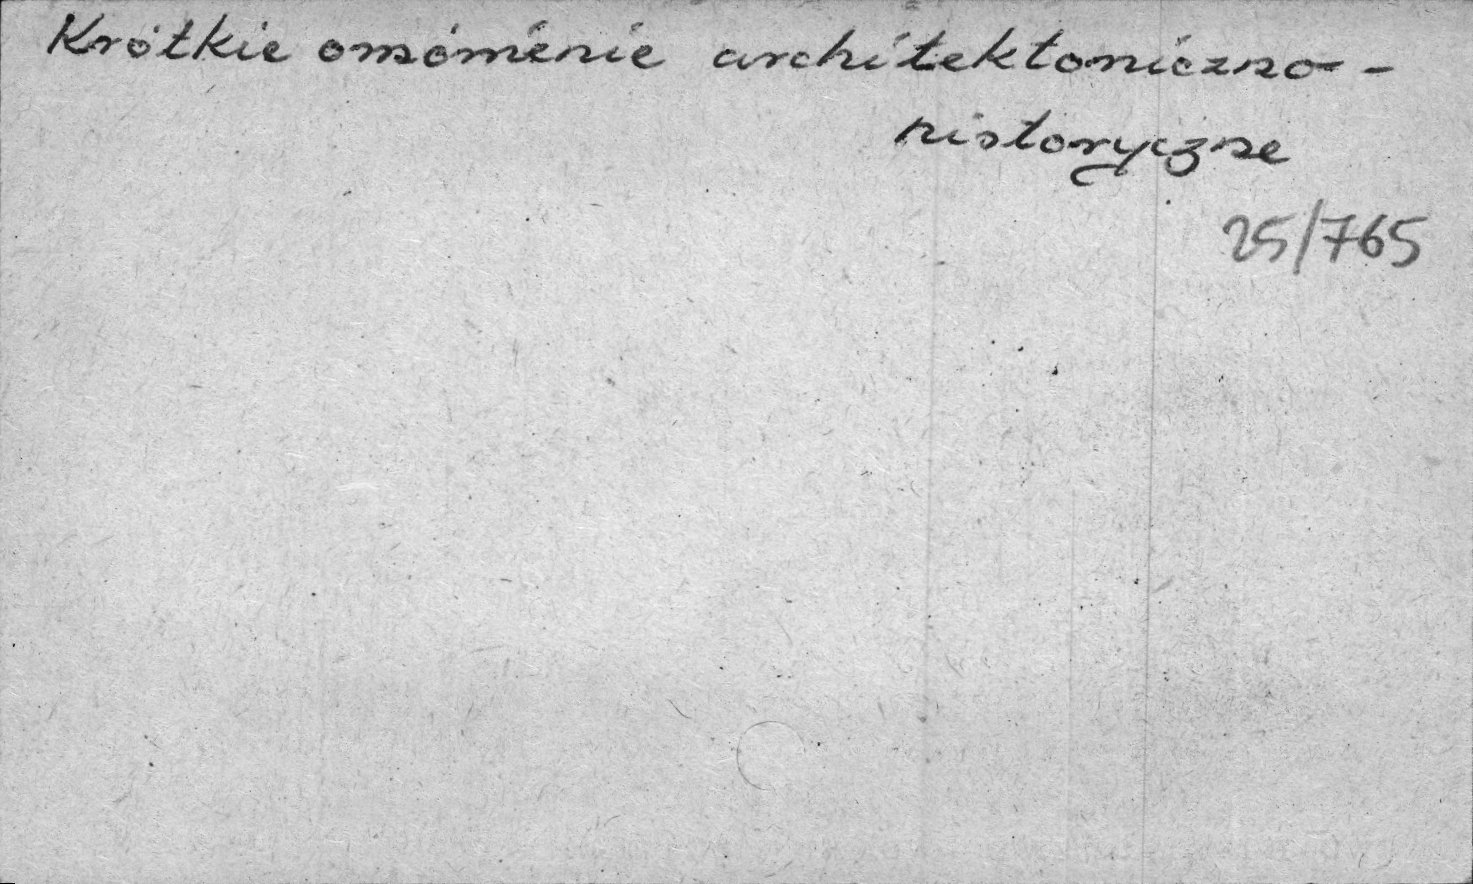 Krótkie omówienie architektoniczno-
historyczne
25/765